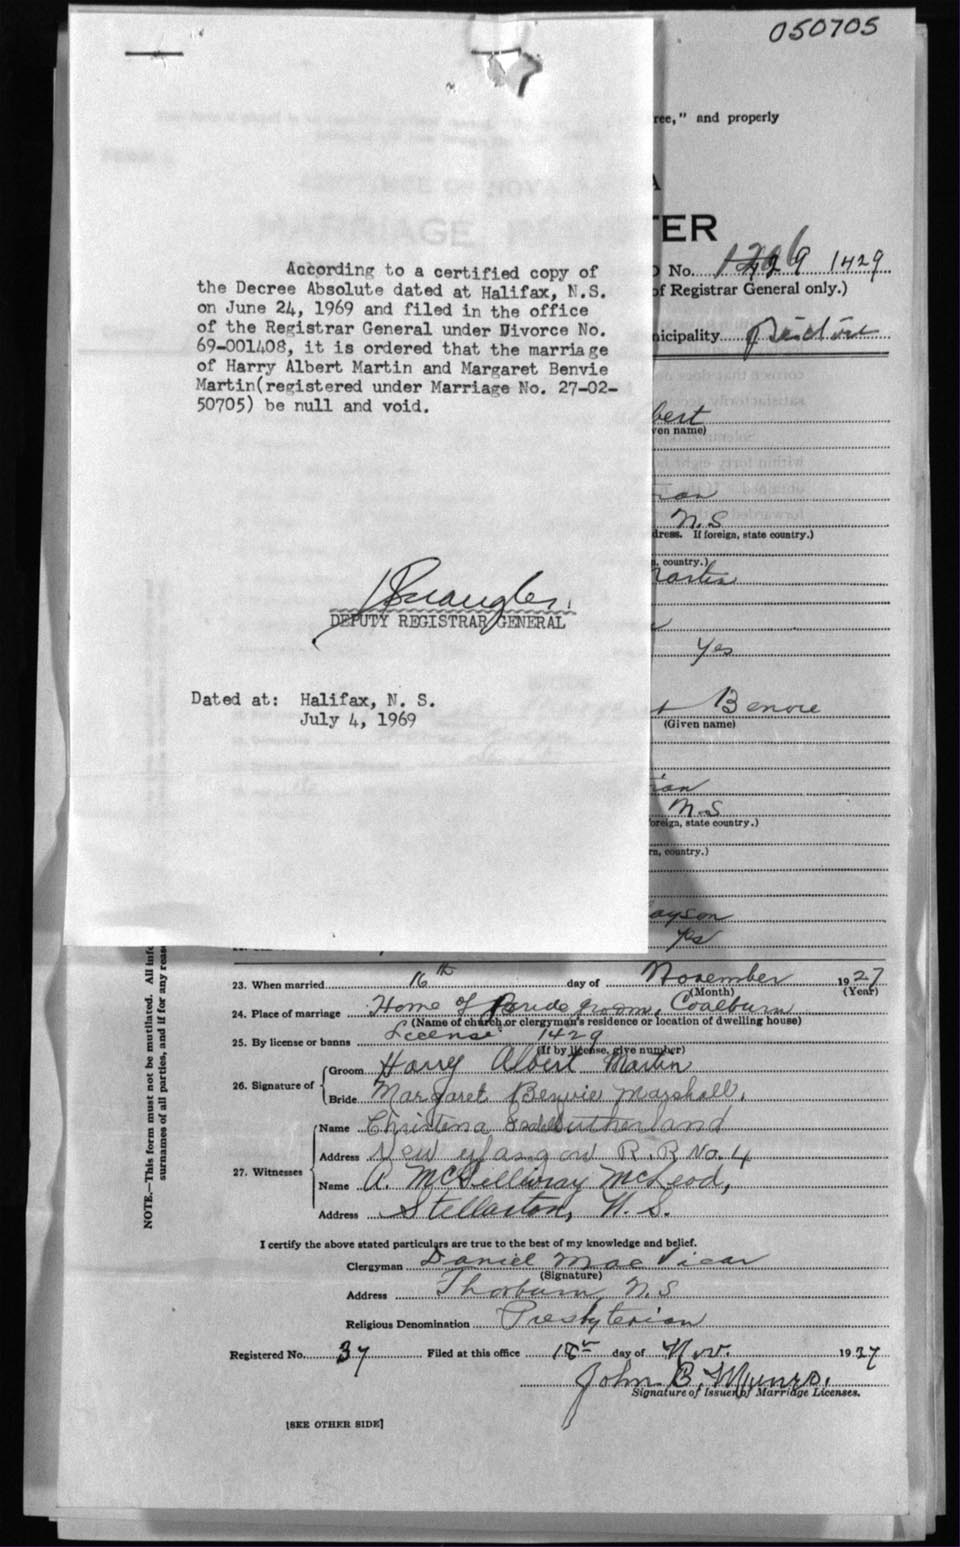 050705
ree," and properly
A
TER
No. 1429
of Registrar General only.)
nicipality Pictou
According to a certified copy of
the Decree Absolute dated at Halifax, N.S.
on June 24, 1969 and filed in the office
of the Registrar General under Divorce No.
69-001408, it is ordered that the marriage
of Harry Albert Martin and Margaret Benvie
Martin(registered under Marriage No. 27-02-
50705) be null and void.
DEPUTY REGISTRAR GENERAL
Dated at: Halifax, N. S.
July 4, 1969
bert
ven name)
N.S
dress. If foreign, state country.)
n, country.)
artin
Yes
Benvie
(Given name)
ian
N.S
oreign, state country.)
rn, country.)
ayson
yes
23. When married 16th day of November 1927
(Month) (Year)
24. Place of marriage Home of Bridegroom, Coalburn
(Name of church or clergyman's residence or location of dwelling house)
25. By license or banns License 1429
(If by license, give number)
26. Signature of
Groom Harry Albert Martin
Bride Margaret Benvie Marshall,
27. Witnesses
Name Christena Sutherland
Address New Glasgow R.R No. 4
Name A. McGillivray McLeod,
Address Stellarton, N. S.
I certify the above stated particulars are true to the best of my knowledge and belief.
Clergyman Daniel MacVicar
(Signature)
Address Thorburn N.S
Religious Denomination Presbyterian
Registered No. 37 Filed at this office 18 day of Nov. 1927
John B. Munro.
Signature of Issuer of Marriage Licenses.
[SEE OTHER SIDE]
NOTE.—This form must not be mutilated. All info
surnames of all parties, and if for any reaso